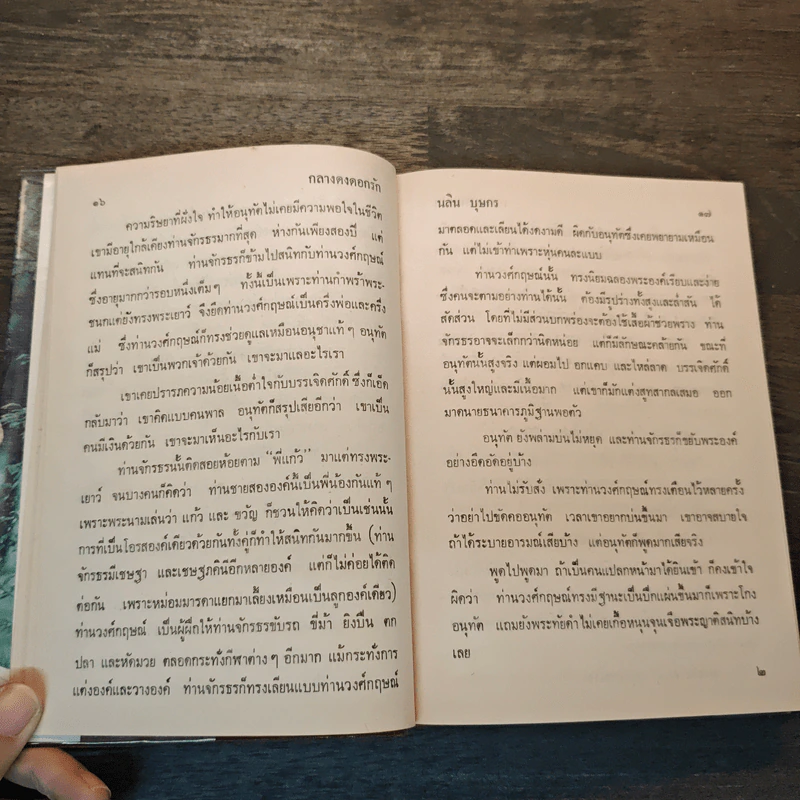 กลางดงดอกรัก
๑๖
ความริษยาที่ฝังใจ ทำให้อนุทัตไม่เคยมีความพอใจในชีวิต
เขามีอายุใกล้เคียงท่านจักรธรมากที่สุด ห่างกันเพียงสองปี แต่
แทนที่จะสนิทกัน ท่านจักรธรก็ข้ามไปสนิทกับท่านวงศ์กฤษณ์
ซึ่งอายุมากกว่ารอบหนึ่งเต็มๆ ทั้งนี้เป็นเพราะท่านกำพร้าพระ-
ชนกแต่ยังทรงพระเยาว์ จึงยึดท่านวงศ์กฤษณ์เป็นครึ่งพ่อและครึ่ง
แม่ ซึ่งท่านวงศ์กฤษณ์ก็ทรงช่วยดูแลเหมือนอนุชาแท้ๆ อนุทัต
ก็สรุปว่า เขาเป็นพวกเจ้าด้วยกัน เขาจะมาแลอะไรเรา
เขาเคยปรารภความน้อยเนื้อต่ำใจกับบรรเจิดศักดิ์ ซึ่งก็เอ็ด
กลับมาว่า เขาคิดแบบคนพาล อนุทัตก็สรุปเสียอีกว่า เขาเป็น
คนมีเงินด้วยกัน เขาจะมาเห็นอะไรกับเรา
ท่านจักรธรนั้นติดสอยห้อยตาม “พี่แก้ว” มาแต่ทรงพระ-
เยาว์ จนบางคนก็คิดว่า ท่านชายสององค์นี้เป็นพี่น้องกันแท้ๆ
เพราะพระนามเล่นว่า แก้ว และ ขวัญ ก็ชวนให้คิดว่าเป็นเช่นนั้น
การที่เป็นโอรสองค์เดียวด้วยกันทั้งคู่ก็ทำให้สนิทกันมากขึ้น (ท่าน
จักรธรมีเชษฐา และเชษฐภคินีอีกหลายองค์ แต่ก็ไม่ค่อยได้ติด
ต่อกัน เพราะหม่อมมารดาแยกมาเลี้ยงเหมือนเป็นลูกองค์เดียว)
ท่านวงศ์กฤษณ์ เป็นผู้ฝึกให้ท่านจักรธรขับรถ ขี่ม้า ยิงปืน ตก
ปลา และหัดมวย ตลอดกระทั่งกีฬาต่างๆ อีกมาก แม้กระทั่งการ
แต่งองค์และวางองค์ ท่านจักรธรก็ทรงเลียนแบบท่านวงศ์กฤษณ์
นลิน บุษกร
๑๗
มาตลอดและเลียนได้งดงามดี ผิดกับอนุทัตซึ่งเคยพยายามเหมือน
กัน แต่ไม่เข้าท่าเพราะหุ่นคนละแบบ
ท่านวงศ์กฤษณ์นั้น ทรงนิยมฉลองพระองค์เรียบและง่าย
ซึ่งคนจะตามอย่างท่านได้นั้น ต้องมีรูปร่างทั้งสูงและล่ำสัน ได้
สัดส่วน โดยที่ไม่มีส่วนบกพร่องจะต้องใช้เสื้อผ้าช่วยพราง ท่าน
จักรธรอาจจะเล็กกว่านิดหน่อย แต่ก็มีลักษณะคล้ายกัน ขณะที่
อนุทัตนั้นสูงจริง แต่ผอมไป อกแคบ และไหล่ลาด บรรเจิดศักดิ์
นั้นสูงใหญ่และมีเนื้อมาก แต่เขาก็มักแต่งสูทสากลเสมอ ออก
มาดนายธนาคารภูมิฐานพอตัว
อนุทัต ยังพล่ามบ่นไม่หยุด และท่านจักรธรก็ขยับพระองค์
อย่างอึดอัดอยู่บ้าง
ท่านไม่รับสั่ง เพราะท่านวงศ์กฤษณ์ทรงเตือนไว้หลายครั้ง
ว่าอย่าไปขัดคออนุทัต เวลาเขาอยากบ่นขึ้นมา เขาอาจสบายใจ
ถ้าได้ระบายอารมณ์เสียบ้าง แต่อนุทัตก็พูดมากเสียจริง
พูดไปพูดมา ถ้าเป็นคนแปลกหน้ามาได้ยินเข้า ก็คงเข้าใจ
ผิดว่า ท่านวงศ์กฤษณ์ทรงมีฐานะเป็นปึกแผ่นขึ้นมาก็เพราะโกง
อนุทัต แถมยังพระทัยดำไม่เคยเกื้อหนุนจุนเจือพระญาติสนิทบ้าง
เลย
๒